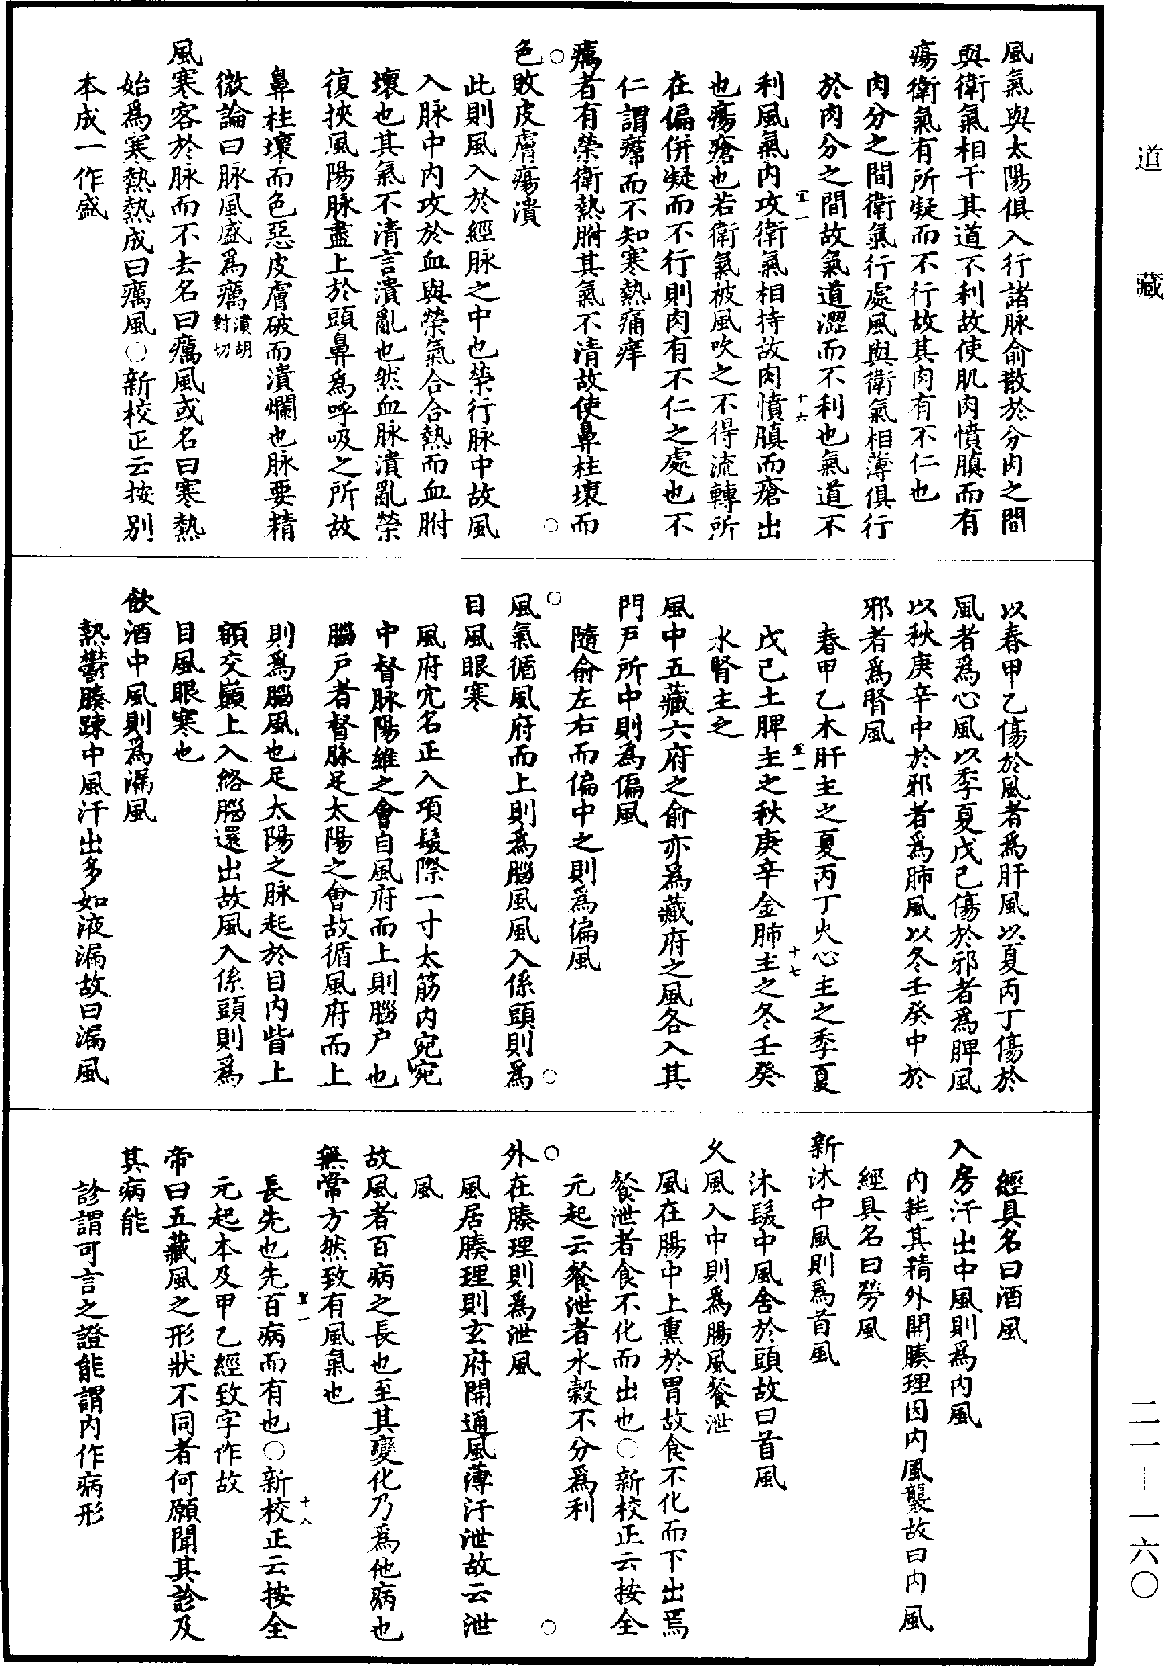 道藏
風氣與太陽俱入行諸脉俞散於分肉之間
與衛氣相干其道不利故使肌肉憤䐜而有
瘍衛氣有所凝而不行故其肉有不仁也
肉分之間衛氣行處風與衛氣相薄俱行
於肉分之間故氣道澀而不利也氣道不
利風氣內攻衛氣相持故肉憤䐜而瘡出
也瘍瘡也若衛氣被風吹之不得流轉所
在偏併凝而不行則肉有不仁之處也不
仁謂𤸷而不知寒熱痛痒
癘者有榮衛熱胕其氣不清故使鼻柱壞而
色敗皮膚瘍潰
此則風入於經脉之中也榮行脉中故風
入脉中內攻於血與榮氣合合熱而血胕
壞也其氣不清言潰亂也然血脉潰亂榮
復挾風陽脉盡上於頭鼻爲呼吸之所故
鼻柱壞而色惡皮膚破而潰爛也脉要精
微論曰脉風盛爲癘潰胡對切
風寒客於脉而不去名曰癘風或名曰寒熱
始爲寒熱熱成曰癘風○新校正云按別
本成一作盛
以春甲乙傷於風者爲肝風以夏丙丁傷於
風者爲心風以季夏戊己傷於邪者爲脾風
以秋庚辛中於邪者爲肺風以冬壬癸中於
邪者爲腎風
春甲乙木肝主之夏丙丁火心主之季夏
戊己土脾主之秋庚辛金肺主之冬壬癸
水腎主之
風中五藏六府之俞亦爲藏府之風各入其
門戶所中則爲偏風
隨俞左右而偏中之則爲偏風
風氣循風府而上則爲腦風風入係頭則爲
目風眼寒
風府穴名正入項髮際一寸大筋內宛宛
中督脉陽維之會自風府而上則腦戶也
腦戶者督脉足太陽之會故循風府而上
則爲腦風也足太陽之脉起於目內眥上
額交巔上入絡腦還出故風入係頭則爲
目風眼寒也
飲酒中風則爲漏風
熱鬱腠踈中風汗出多如液漏故曰漏風
經具名曰酒風
入房汗出中風則爲內風
內耗其精外開腠理因內風襲故曰內風
經具名曰勞風
新沐中風則爲首風
沐髮中風舍於頭故曰首風
久風入中則爲腸風飱泄
風在腸中上熏於胃故食不化而下出焉
飱泄者食不化而出也○新校正云按全
元起云飱泄者水穀不分爲利
外在腠理則爲泄風
風居腠理則玄府開通風薄汗泄故云泄
風
故風者百病之長也至其變化乃爲他病也
無常方然致有風氣也
長先也先百病而有也○新校正云按全
元起本及甲乙經致字作故
帝曰五藏風之形狀不同者何願聞其診及
其病能
診謂可言之證能謂內作病形
二一—一六〇